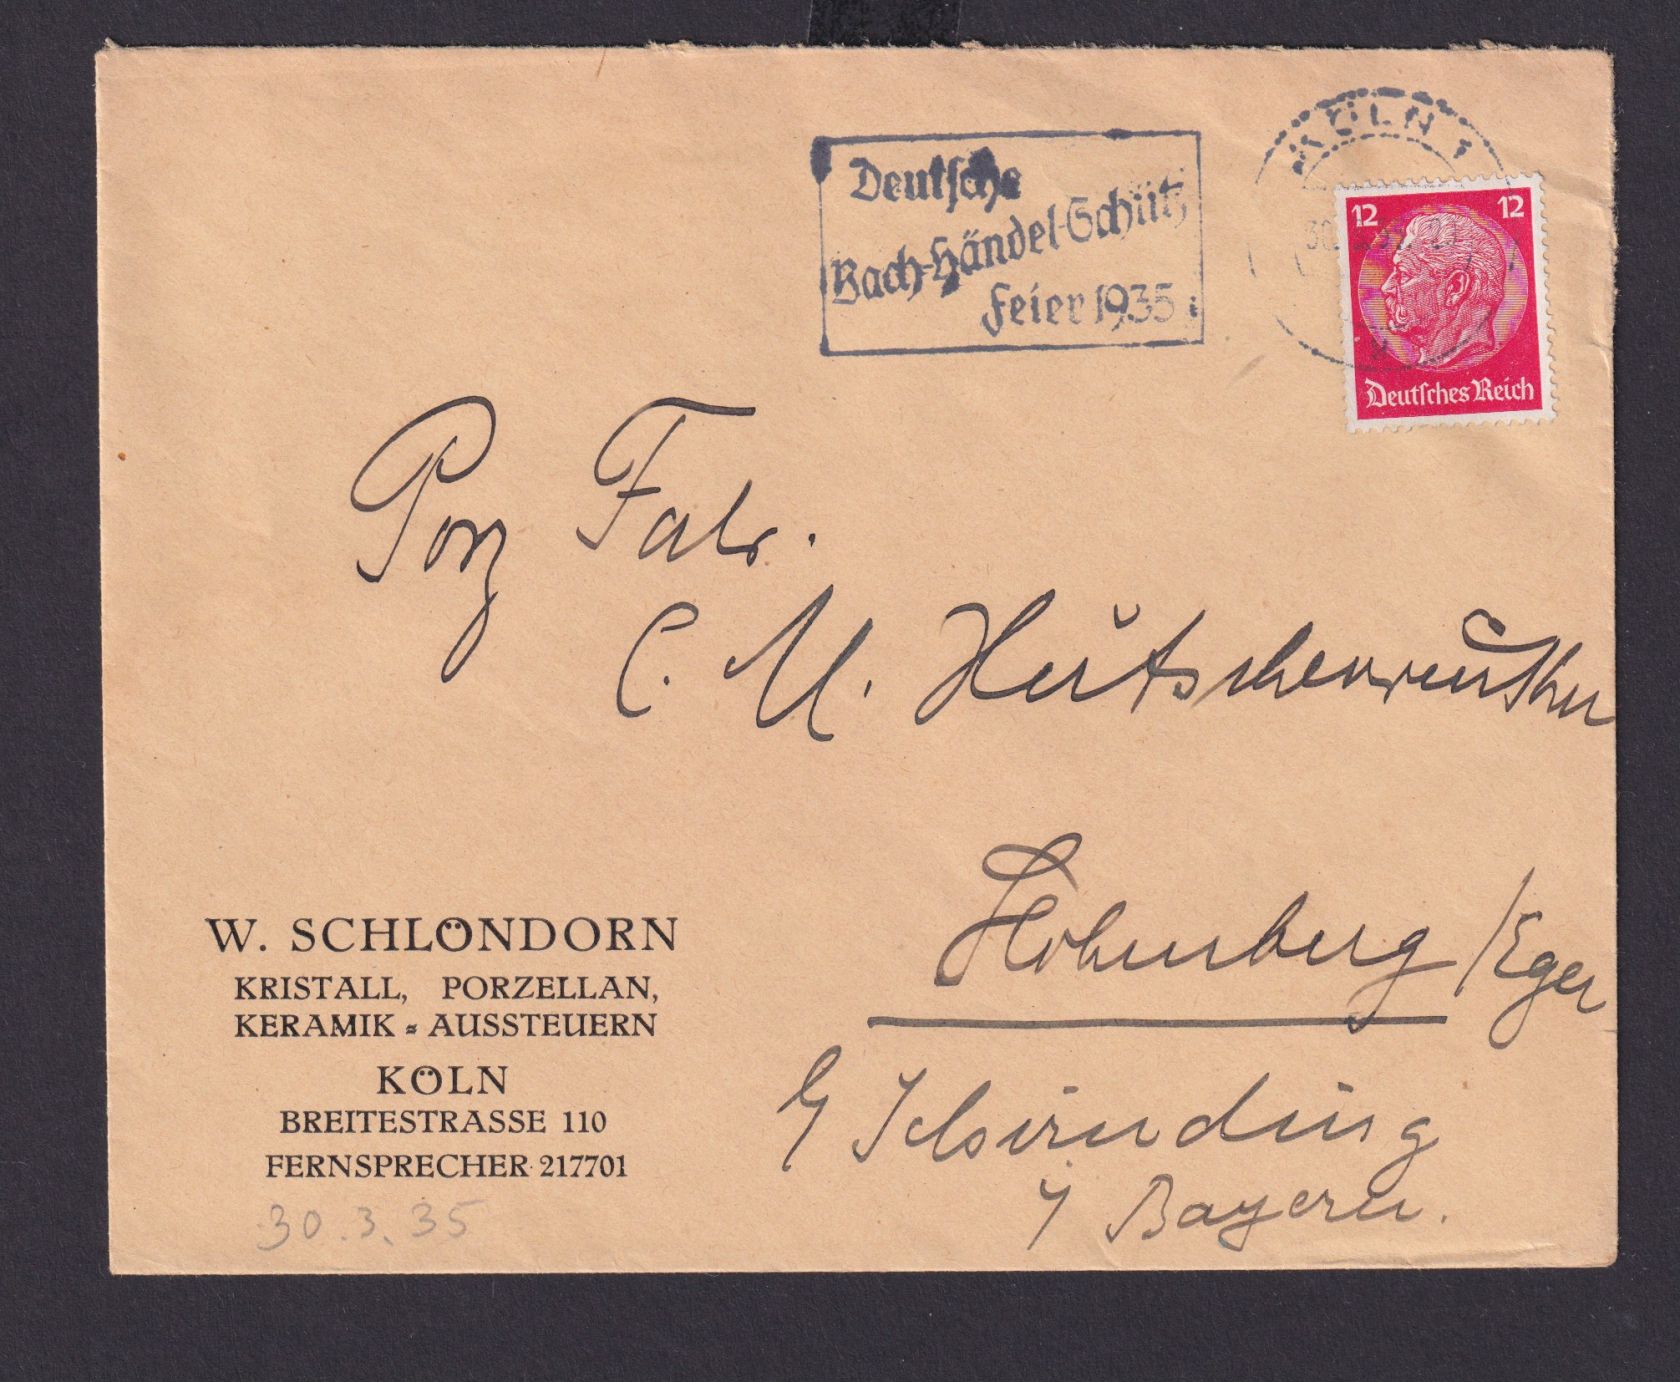 Deutsche
Bach-Händel-Schütz
Feier 1935
KÖLN 1
30. 35. 20
12 12
Deutsches Reich
Porz Fabr.
C. M. Hutschenreuther
Hohenberg /Eger
b/ Schirnding
i/ Bayern.
W. SCHLÖNDORN
KRISTALL, PORZELLAN,
KERAMIK = AUSSTEUERN
KÖLN
BREITESTRASSE 110
FERNSPRECHER 217701
30.3.35